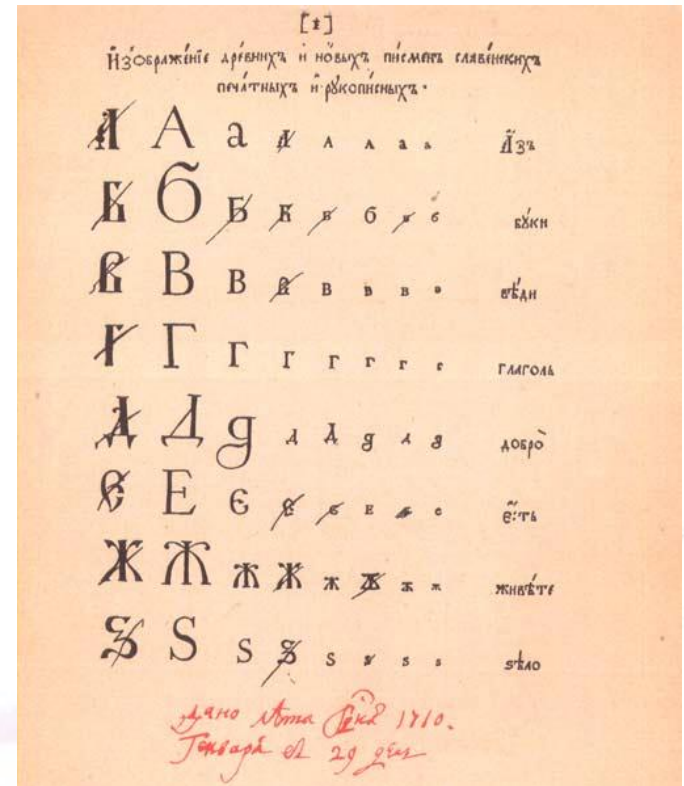 И҆зѡбраже́нїе дре́внихъ и҆ но́выхъ пи́сменъ славе́нскихъ
печа́тныхъ и҆ рꙋкопи́сныхъ.
А А а А А А а а А҆́зъ
Б Б Б Б Б б в б бꙋ́ки
В В В В В в в в вѣ́ди
Г Г Г Г Г г г г глаголь
Д Д д д Д д д д добро̀
Є Е Є Є є Е є є є҆́:ть
Ж Ж Ж Ж ж Ж ж ж живѣ́те
Ѕ Ѕ Ѕ Ѕ ѕ ѕ ѕ ѕ ѕѣло
Дано лѣта 1710.
Генваря 29 день